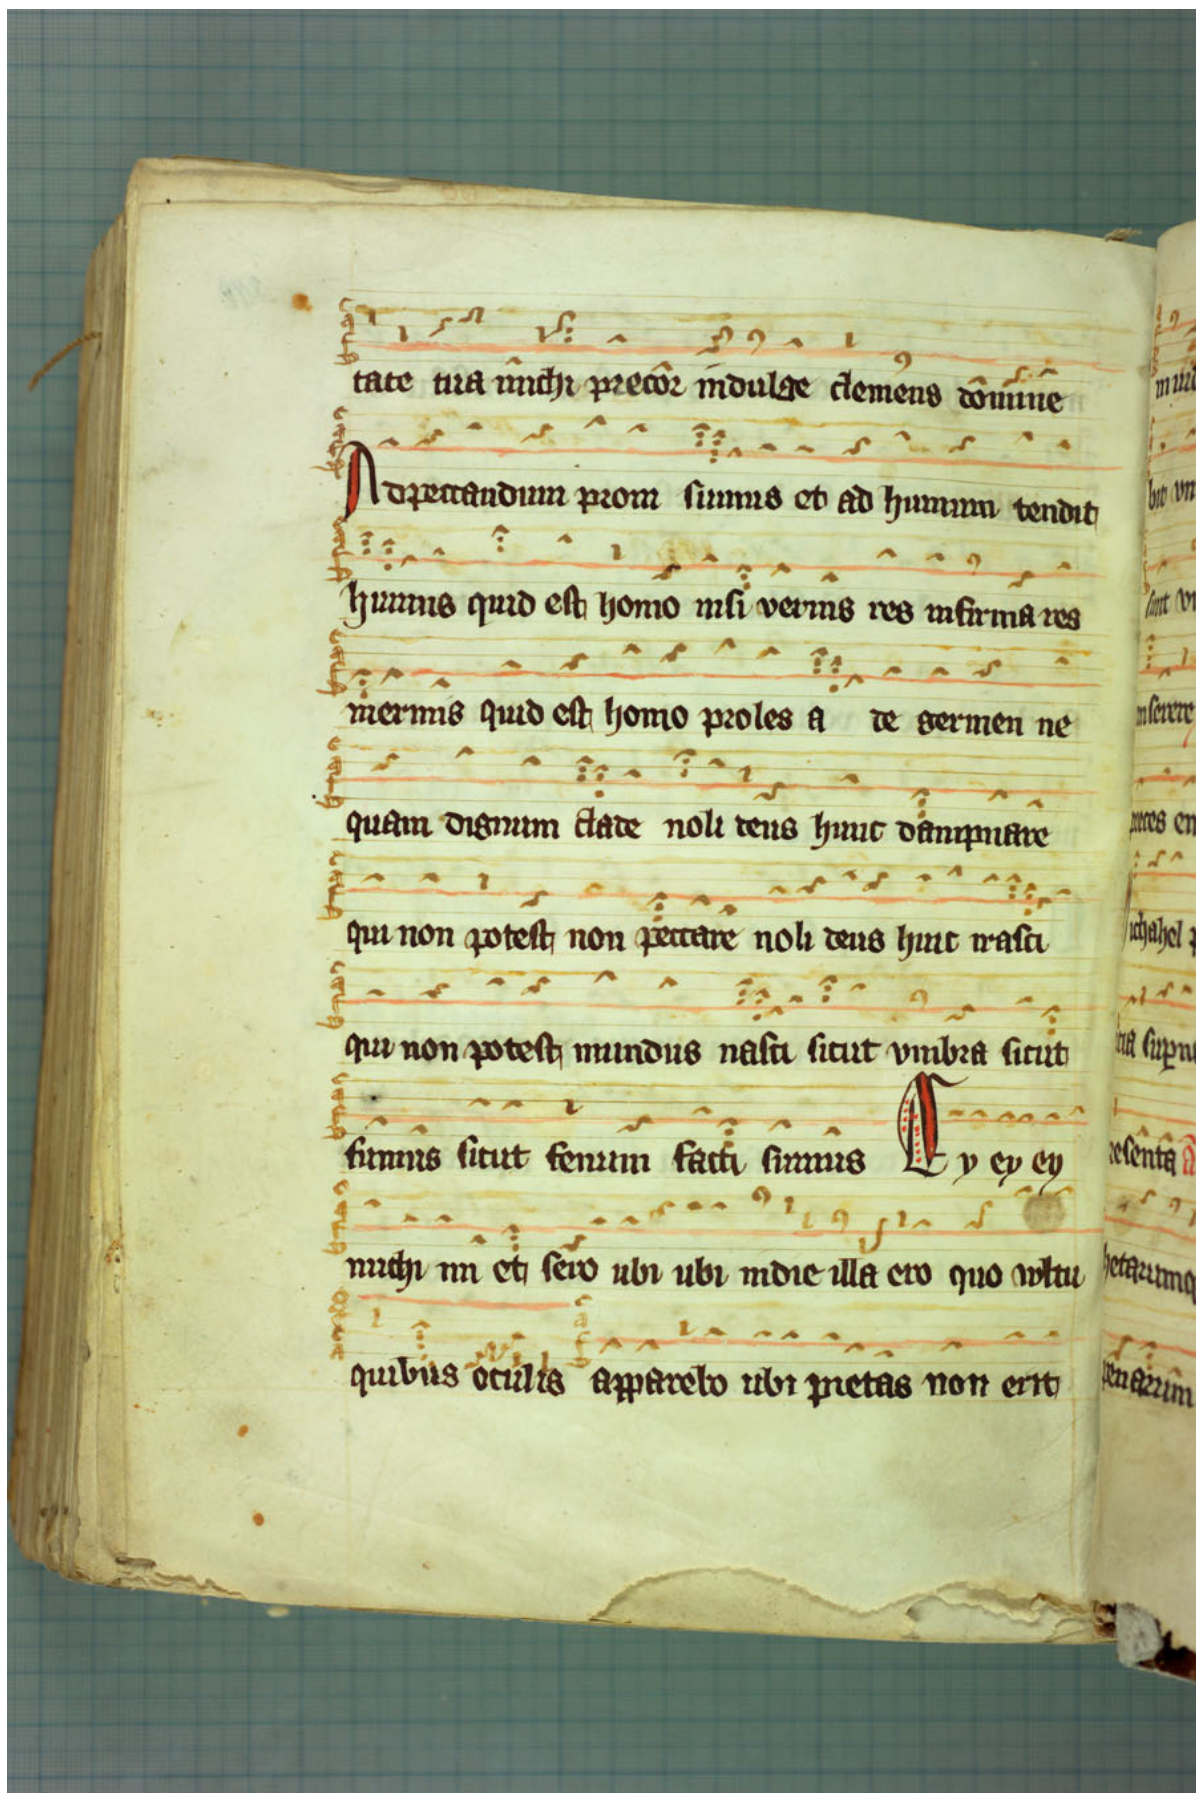 tate tua michi precor indulge clemens domine
Adpeccandum proni sumus et ad humum tendit
humus quid est homo nisi vermis res infirma res
inermis quid est homo proles a de germen ne
quam dignum clade noli deus hunc dampnare
qui non potest non peccare noli deus huic irasci
qui non potest mundus nasci sicut vmbra sicut
fumus sicut fenum facti sumus Ey ey ey
michi mi et sero ubi ubi indie illa ero quo wltu
quibus oculis apparebo ubi pietas non erit